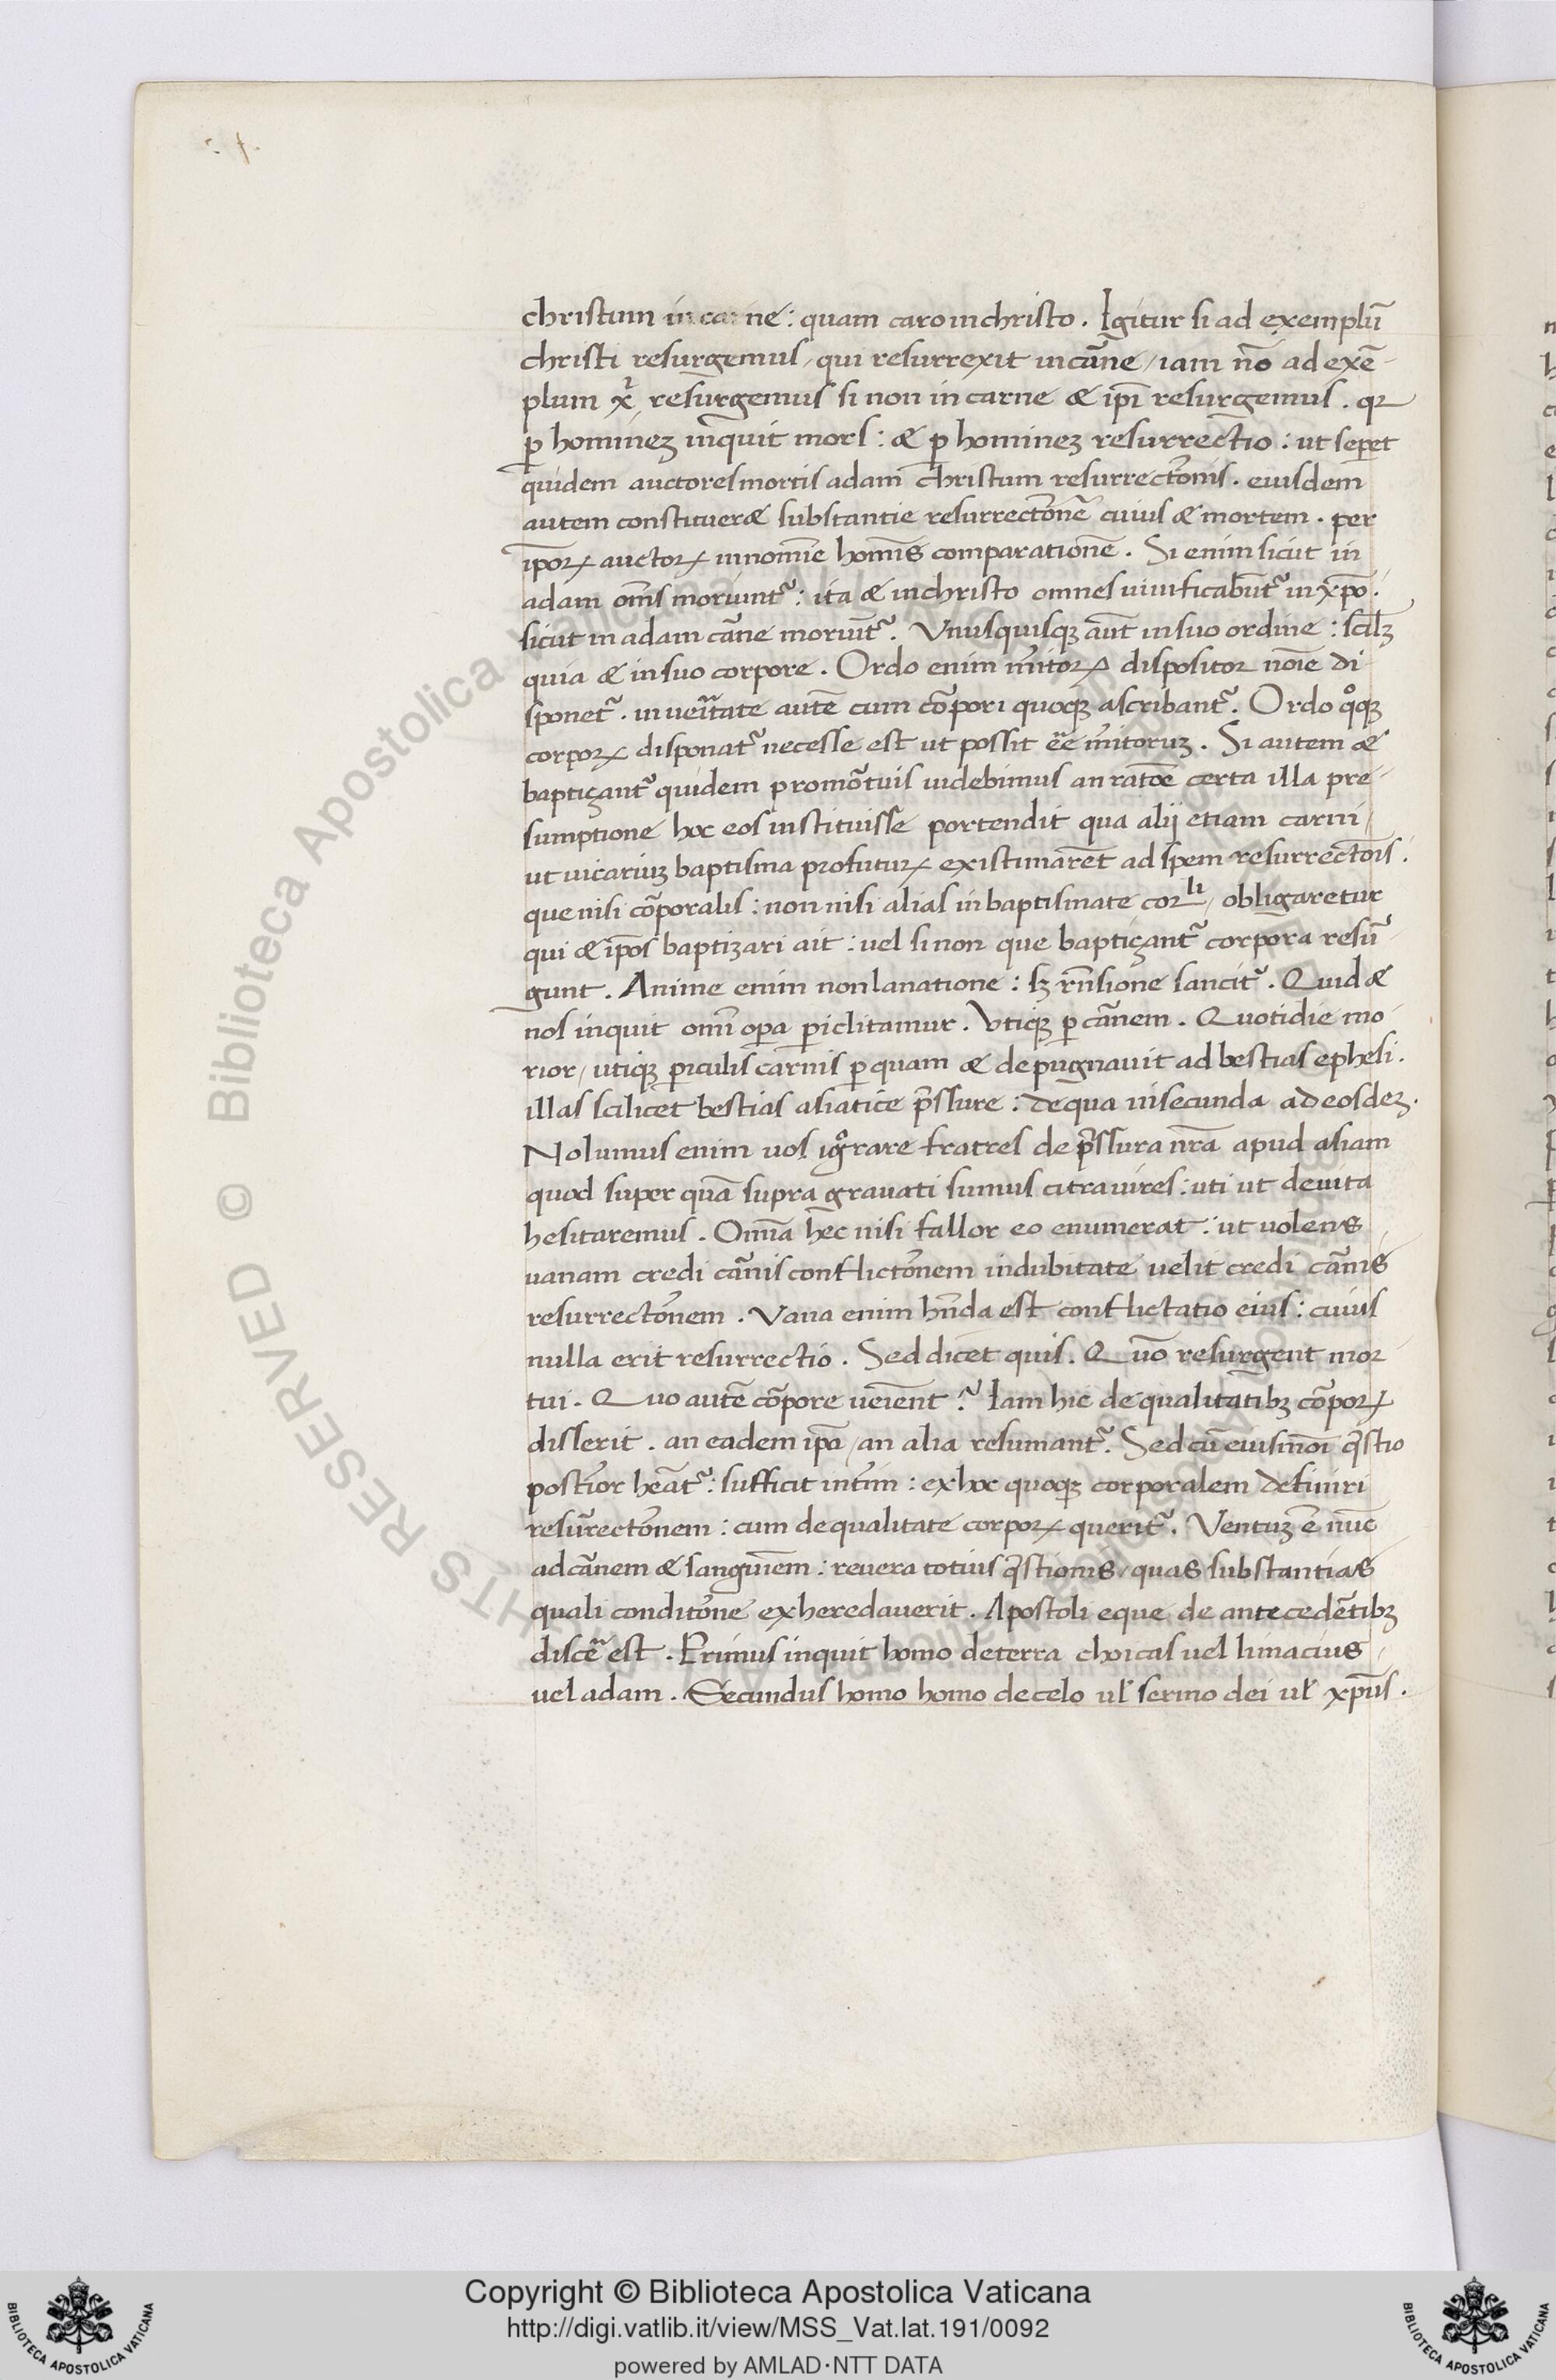 christum in carne : quam caro in christo . Igitur si ad exemplū
christi resurgemus / qui resurrexit in cāne / iam nō ad exē
plum xp̄i resurgemus si non in carne & ip̄i resurgemus . qꝛ
ꝑ hominez inquit mors : & ꝑ hominez resurrectio : ut seꝑet
quidem auctores mortis adam christum resurrectōnis . eiusdem
autem constituer& substantie resurrectōnē cuius & mortem . per
ip̄oꝝ auctoꝝ in nomīe homīs comparationē . Si enim sicut in
adam om̄s moriunt᷑ : ita & in christo omnes uiuificabūt᷑ in xp̄o .
sicut in adam cāne moriūt᷑ . Vnusquisqꝫ aūt in suo ordine : scilꝫ
quia & in suo corpore . Ordo enim m̄itoꝝ dispositor noīe di
sponet᷑ . in ueritate autē cum cōpori quoqꝫ ascribant᷑ . Ordo qͦqꝫ
corpoꝝ disponat᷑ necesse est ut possit eē m̄itoruꝫ . Si autem &
baptiçant᷑ quidem pro mōtuis uidebimus an ratōe certa illa pre
sumptione hoc eos instituisse portendit qua alij etiam carni /
ut uicariuꝫ baptisma profutuꝝ existimarēt ad spem resurrectōis .
que nisi cōporalis : non nisi alias in baptismate corˡⁱ / obligaretur
qui & ip̄os baptizari ait : uel si non que baptiçant᷑ corpora resū
gunt . Anime enim non lanatione : sꝫ rn̄sione sancit᷑ . Quid &
nos inquit omī oꝑa ꝑiclitamur . Vtiqꝫ ꝑ cānem . Quotidie mo
rior / utiqꝫ ꝑiculis carnis ꝑ quam & depugnauit ad bestias ephesi .
illas scilicet bestias asiatice p̄ssure : de qua in secunda ad eosdeꝫ .
Nolumus enim uos igͦrare fratres de p̄ssura nr̄a apud asiam
quod super quā supra grauati sumus citra uires : uti ut de uita
hesitaremus . Omīa hec nisi fallor eo enumerat : ut uolens
uanam credi cānis conflictōnem indubitate uelit credi cānis
resurrectōnem . Vana enim hn̄da est conflictatio eius : cuius
nulla erit resurrectio . Sed dicet quis . Quō resurgent mor
tui . Quo autē cōpore ueīent ? Iam hic de qualitatibꝫ cōpoꝝ
disserit . an eadem ip̄a / an alia resumant᷑ . Sed cū eiusmōi q̄stio
posterior heāt᷑ : sufficit int̄im : ex hoc quoqꝫ corporalem definiri
resurrectōnem : cum de qualitate corpoꝝ querit᷑ . Ventuꝫ ē nūc
ad cānem & sanguīem : reuera totius q̄stionis / quas substantias
quali conditōne exheredauerit . Apostoli eque de antecedētibꝫ
discē est . Primus inquit homo de terra choicas uel limacius /
uel adam . Secundus homo homo de celo ul̓ sermo dei ul̓ xp̄us .
© Biblioteca Apostolica Vaticana
RIGHTS RESERVED
Copyright © Biblioteca Apostolica Vaticana
http://digi.vatlib.it/view/MSS_Vat.lat.191/0092
powered by AMLAD·NTT DATA
BIBLIOTECA APOSTOLICA VATICANA
BIBLIOTECA APOSTOLICA VATICANA